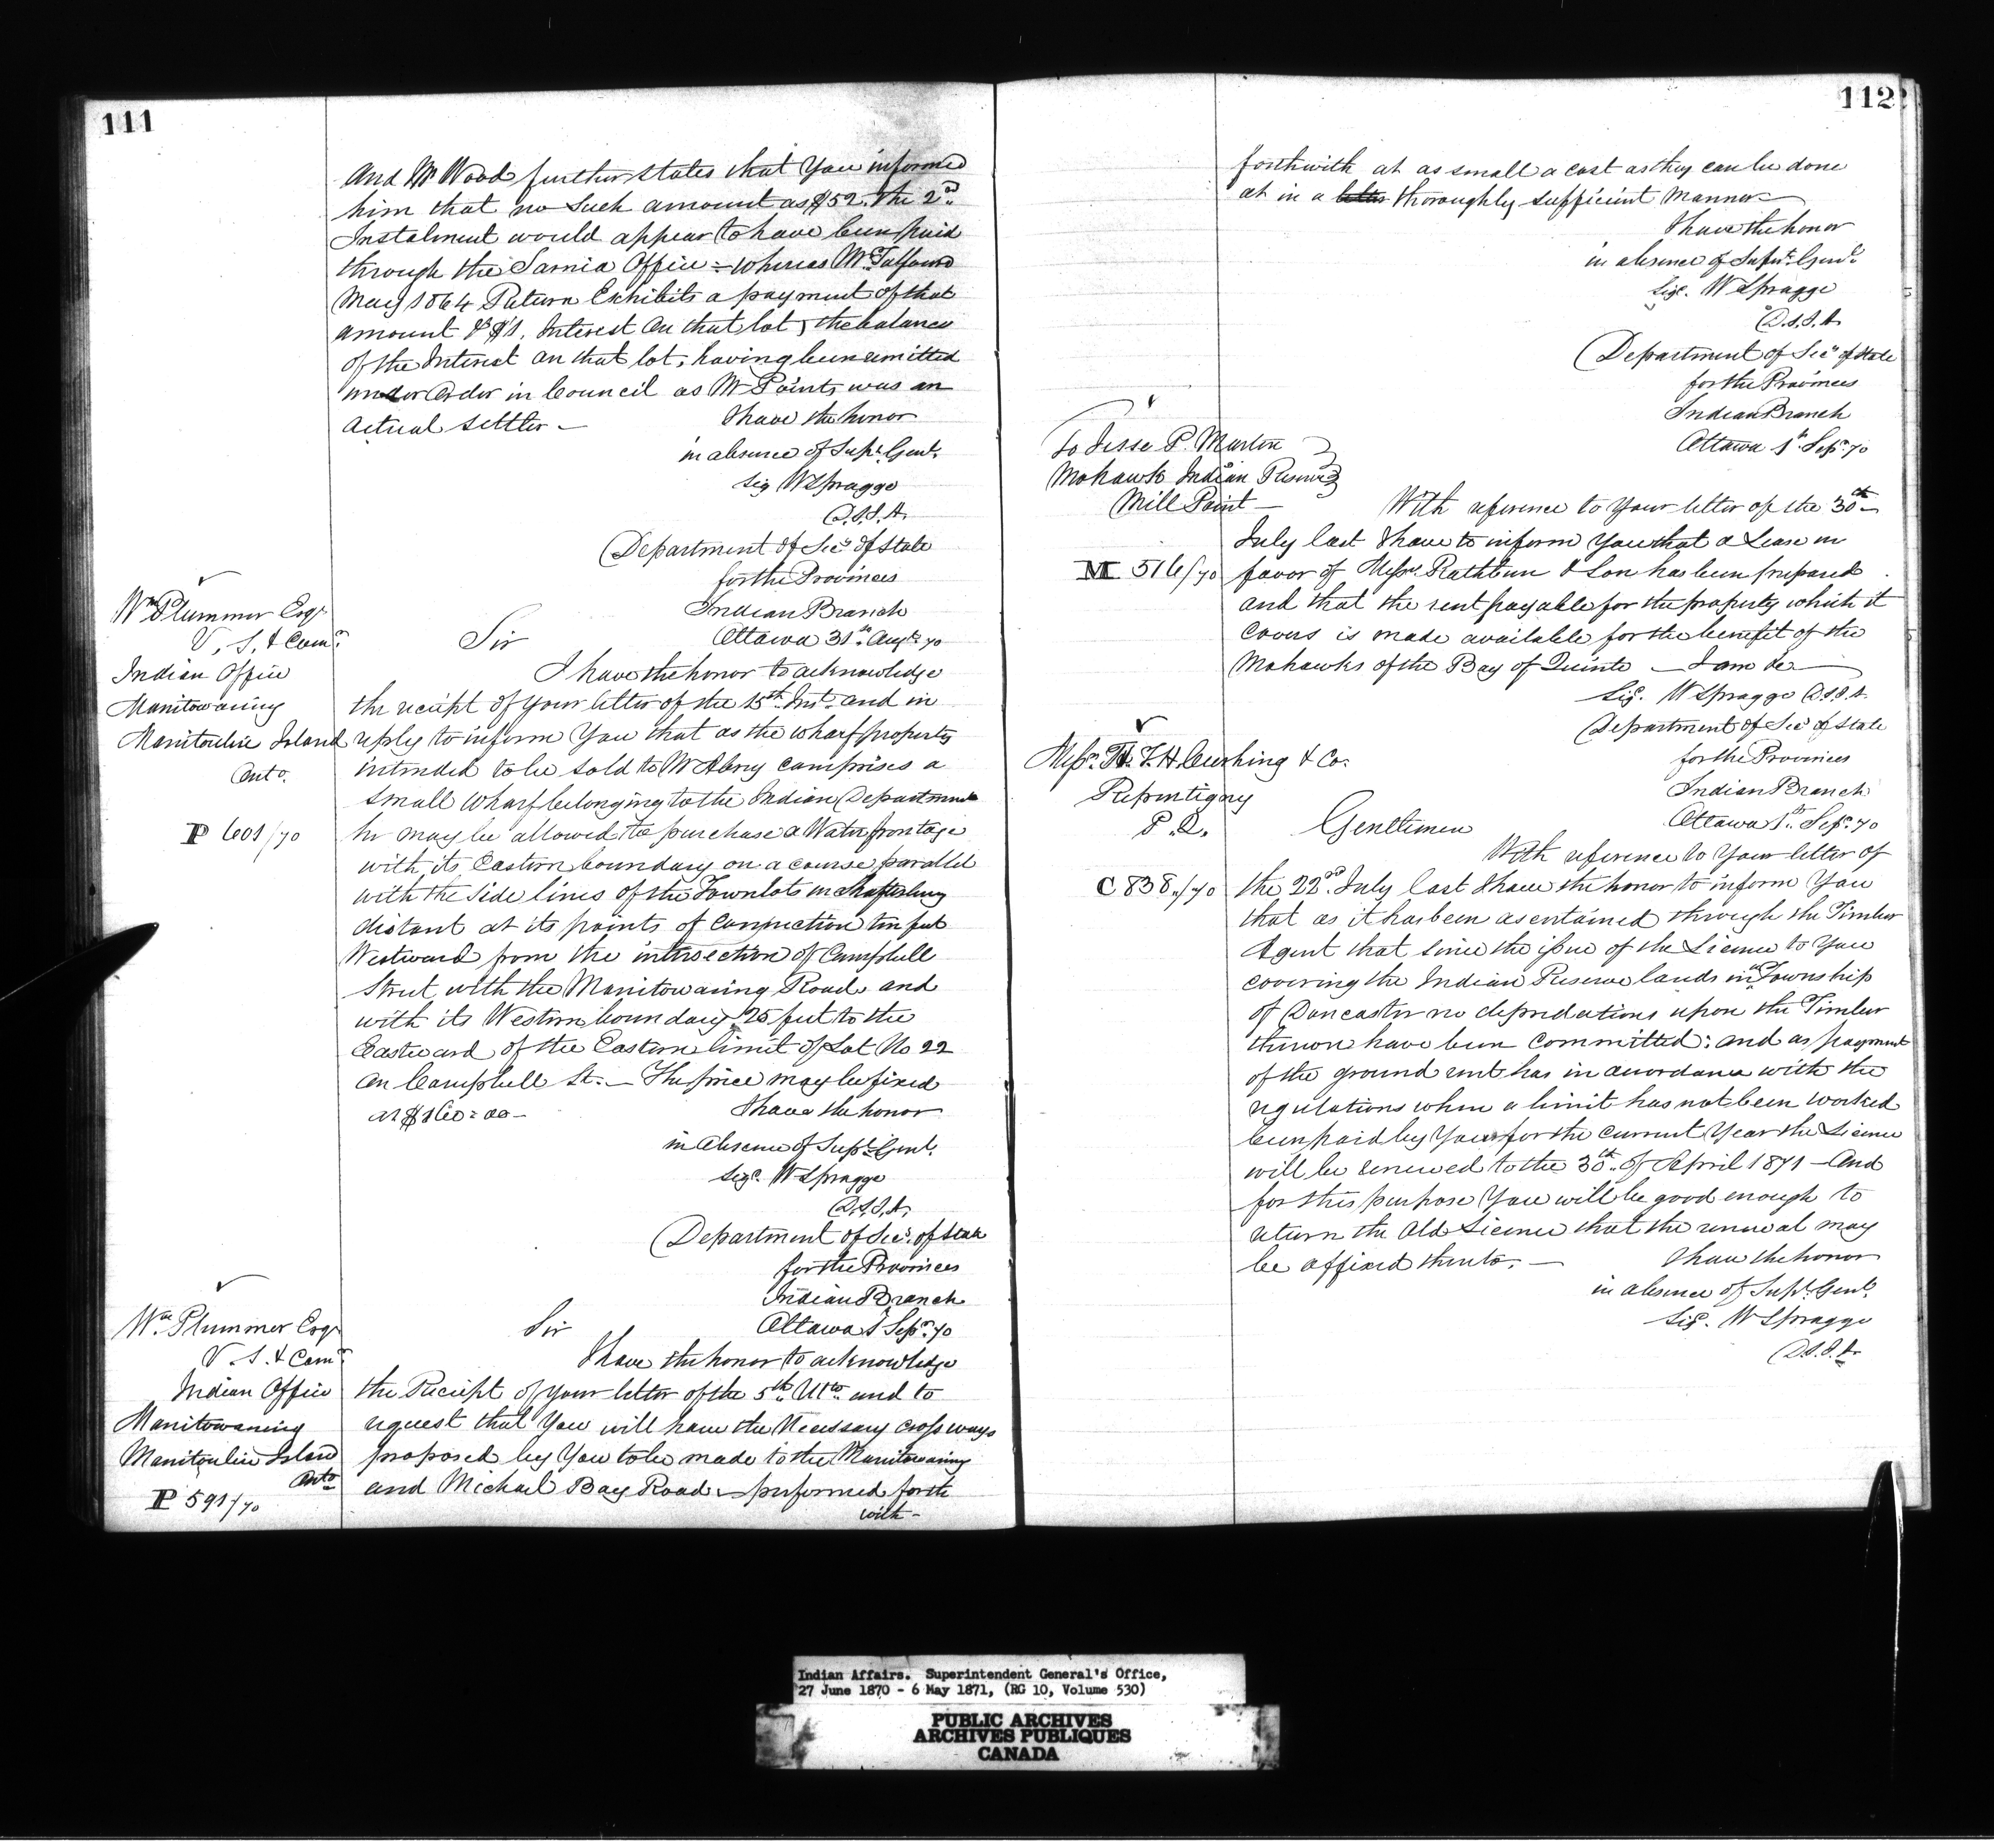 111
And Mr Wood further states that You informed
him that no such amount as $52. the 2nd
Instalment would appear to have been paid
through the Sarnia Office = whereas Mr Talfourd
May 1864 Return Exhibits a payment of that
amount & $1. Interest on that lot, the balance
of the Interest on that lot, having been remitted
under Order in Council as Mr Points was an
actual settler —
I have the honor
in absence of Supt. Genl.
Sig WSpragge
D.S.I.A.
Department of Secy of State
for the Provinces
Indian Branch
Ottawa 31st Augt. 70
Wm Plummer Esqr
V. S. & Comr.
Indian Office
Manitowaning
Manitoulin Island
Onto.
P 601/70
Sir
I have the honor to acknowledge
the receipt of your letter of the 15th Inst. and in
reply to inform You that as the wharf property
intended to be sold to Mr Abrey comprises a
small wharf belonging to the Indian Department
he may be allowed to purchase a Water frontage
with its Eastern boundary on a course parallel
with the side lines of the Town lots in Shaftesbury
distant at its points of connection ten feet
Westward from the intersection of Campbell
Street with the Manitowaning Road and
with its Western boundary 25 feet to the
Eastward of the Eastern limit of Lot No 22
on Campbell St. — The price may be fixed
at $160=00 —
I have the honor
in absence of Supt. Genl.
Sigd. WSpragge
D.S.I.A.
Department of Secy. of State
for the Provinces
Indian Branch
Ottawa 1st Sepr. 70
Wm. Plummer Esqr
V. S. & Comr.
Indian Office
Manitowaning
Manitoulin Island
Onto
P 591/70
Sir
I have the honor to acknowledge
the Receipt of your letter of the 5th Ulto. and to
request that You will have the Necessary cross ways
proposed by You to be made to the Manitowaning
and Michael Bay Road — performed forth
with —
112
forthwith at as small a cost as they can be done
at in a thoroughly sufficient manner —
I have the honor
in absence of Supt. Genl.
Sigd. WSpragge
D.S.I.A.
Department of Secy of State
for the Provinces
Indian Branch
Ottawa 1st Sepr. 70
To Jesse P. Martin
Mohawk Indian Reserve
Mill Point —
M 516/70
With reference to Your letter of the 30th
July last I have to inform You that a Lease in
favor of Messrs. Rathbun & Son has been prepared
and that the rent payable for the property which it
covers is made available for the benefit of the
Mohawks of the Bay of Quinte — I am &c —
Sigd. WSpragge D.S.I.A.
Department of Secy of State
for the Provinces
Indian Branch
Ottawa 1st. Sepr. 70
Messrs. T. H. Cushing & Co.
Repentigny
P. Q.
C 838./70
Gentlemen
With reference to Your letter of
the 22nd. July last I have the honor to inform You
that as it has been ascertained through the Timber
Agent that since the issue of the License to You
covering the Indian Reserve lands in the Township
of Doncaster no depredations upon the Timber
thereon have been committed: and as payment
of the ground rent has in accordance with the
regulations when a limit has not been worked
been paid by You for the current Year the License
will be renewed to the 30th. of April 1871 — And
for this purpose You will be good enough to
return the Old License that the renewal may
be affixed thereto. —
I have the honor
in absence of Supt. Genl.
Sigd. WSpragge
D.S.I.A.
Indian Affairs. Superintendent General's Office,
27 June 1870 - 6 May 1871, (RG 10, Volume 530)
PUBLIC ARCHIVES
ARCHIVES PUBLIQUES
CANADA